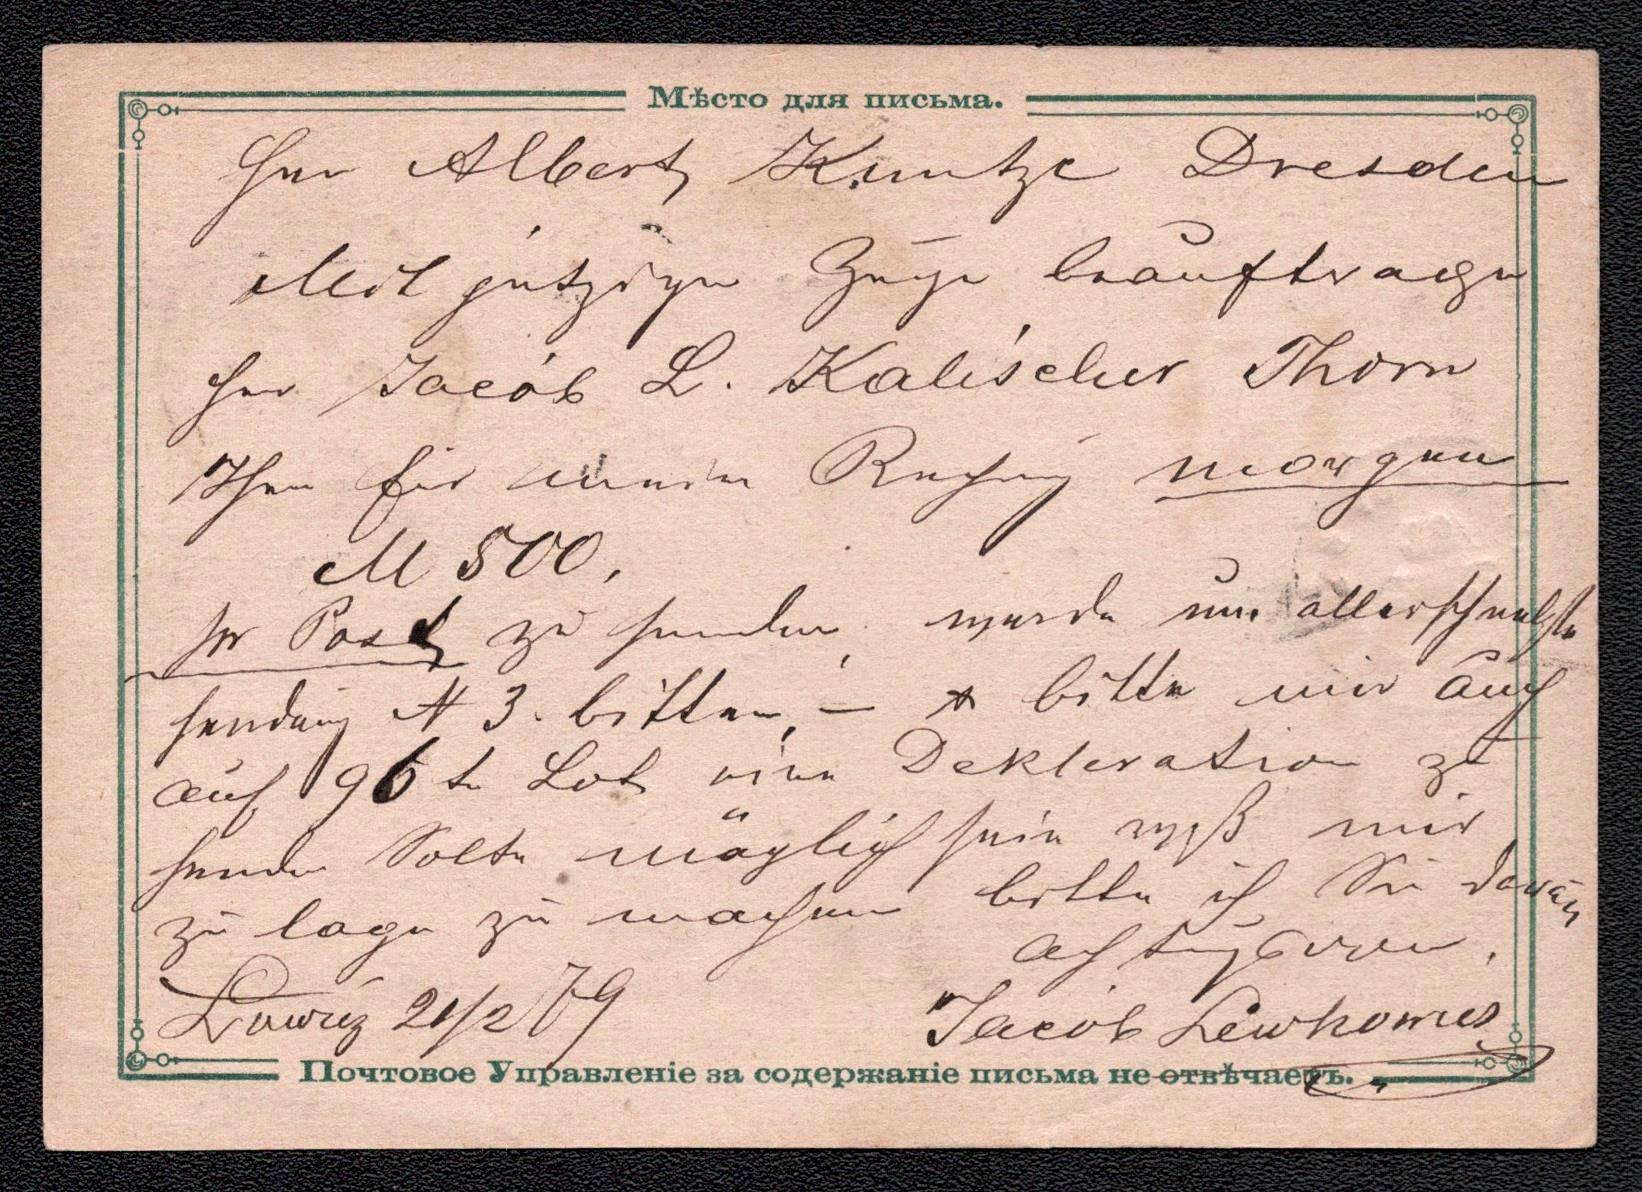 Мѣсто для письма.
Herr Albert Kuntze Dresden
Mit jetzigen Zuge beauftrage
Herr Jacob L. Kalischer Thorn
Ihnen für meine Rechnung morgen
M 500.
pr Post zu senden, werde um allerschnelste
sendung N 3. bitten, — bitte mir auch
auf 96 te Lot eine Dekleration zu
senden Solte möglich sein mir
zu lage zu machen bitte ich Sie
achtungsvoll.
Lowicz 21/2 79
Jacob Lewkowicz
Почтовое Управленіе за содержаніе письма не отвѣчаетъ.